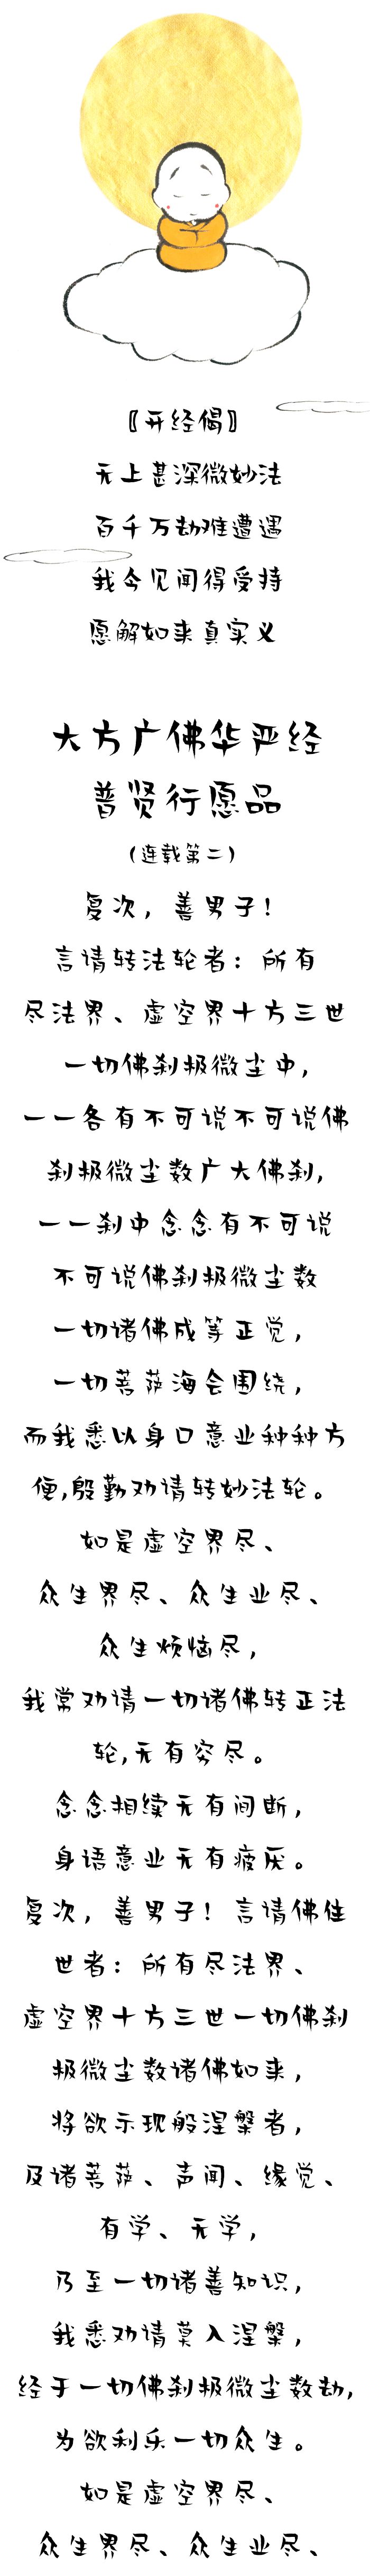 〖开经偈〗
无上甚深微妙法
百千万劫难遭遇
我今见闻得受持
愿解如来真实义
大方广佛华严经
普贤行愿品
(连载第二)
复次，善男子！
言请转法轮者：所有
尽法界、虚空界十方三世
一切佛刹极微尘中，
一一各有不可说不可说佛
刹极微尘数广大佛刹，
一一刹中念念有不可说
不可说佛刹极微尘数
一切诸佛成等正觉，
一切菩萨海会围绕，
而我悉以身口意业种种方
便,殷勤劝请转妙法轮。
如是虚空界尽、
众生界尽、众生业尽、
众生烦恼尽，
我常劝请一切诸佛转正法
轮,无有穷尽。
念念相续无有间断，
身语意业无有疲厌。
复次，善男子！言请佛住
世者：所有尽法界、
虚空界十方三世一切佛刹
极微尘数诸佛如来，
将欲示现般涅槃者，
及诸菩萨、声闻、缘觉、
有学、无学，
乃至一切诸善知识，
我悉劝请莫入涅槃，
经于一切佛刹极微尘数劫,
为欲利乐一切众生。
如是虚空界尽、
众生界尽、众生业尽、